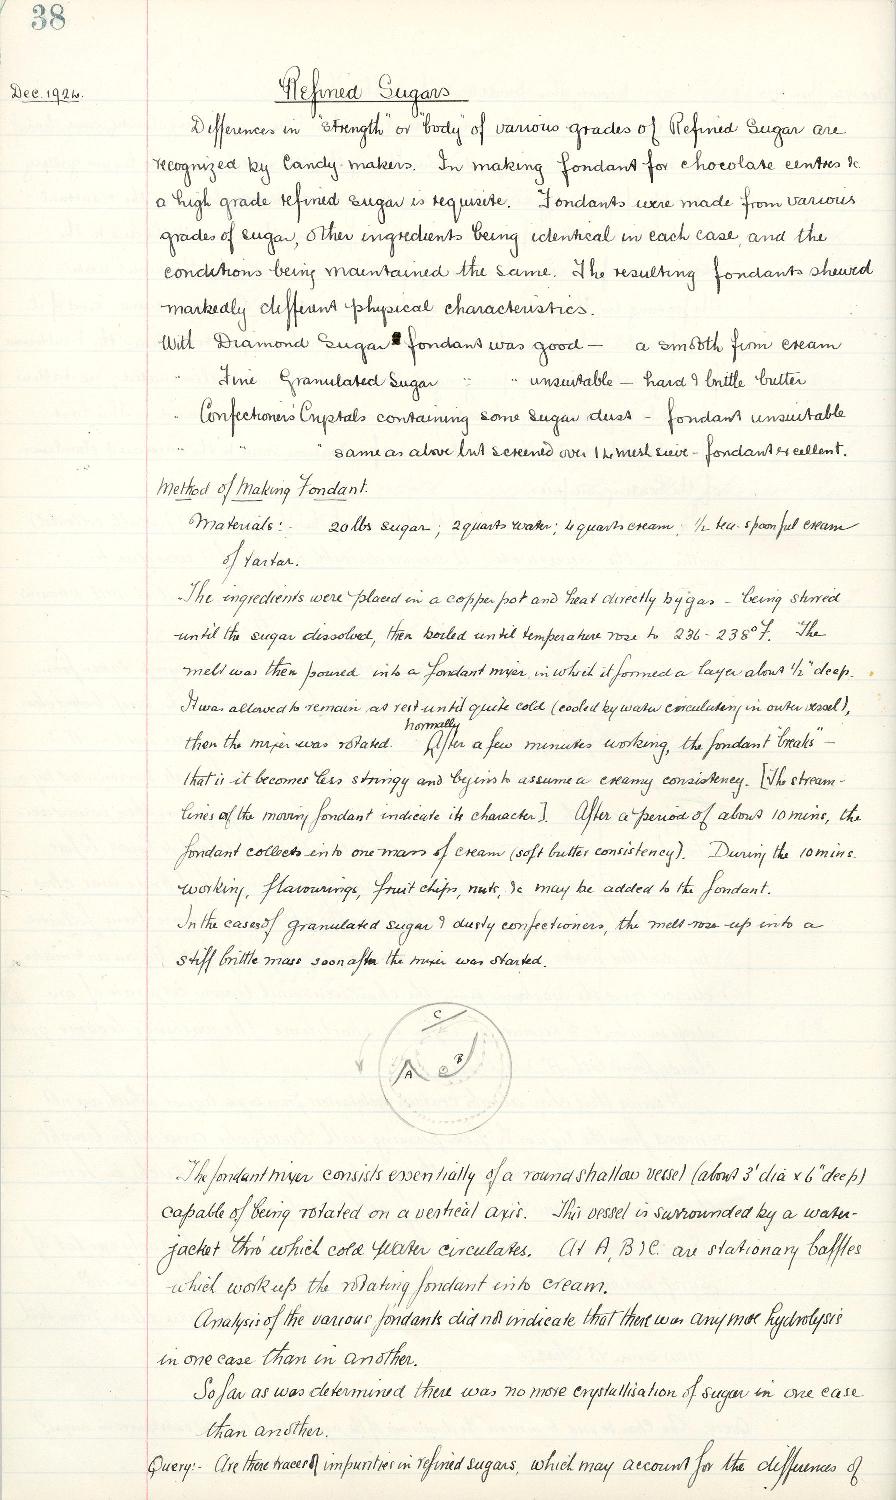 38
Dec. 1924.
Refined Sugars
Differences in "strength" or "body" of various grades of Refined Sugar are
recognized by Candy-makers. In making fondant for chocolate centres &c
a high grade refined sugar is requisite. Fondants were made from various
grades of sugar, other ingredients being identical in each case, and the
conditions being maintained the same. The resulting fondants shewed
markedly different physical characteristics.
With Diamond Sugar fondant was good — a smooth firm cream
" Fine Granulated Sugar " " unsuitable — hard & brittle butter
" Confectioners' Crystals containing some sugar dust - fondant unsuitable
" " " same as above but screened over 14 mesh sieve - fondant excellent.
Method of Making Fondant.
Materials:- 20 lbs sugar; 2 quarts water; 4 quarts cream; ½ tea-spoonful cream
of tartar.
The ingredients were placed in a copper pot and heat directly by gas - being stirred
until the sugar dissolved, then boiled until temperature rose to 236-238°F. The
melt was then poured into a fondant mixer, in which it formed a layer about ½" deep.
It was allowed to remain at rest until quite cold (cooled by water circulating in outer vessel),
then the mixer was rotated. Normally After a few minutes working, the fondant "breaks" —
that is it becomes less stringy and begins to assume a creamy consistency. [The stream-
lines of the moving fondant indicate its character]. After a period of about 10 mins, the
fondant collects into one mass of cream (soft butter consistency). During the 10 mins.
working, flavourings, fruit chips, nuts, &c may be added to the fondant.
In the cases of granulated sugar & dusty confectioners, the melt rose up into a
stiff brittle mass soon after the mixer was started.
C
B
A
The fondant mixer consists essentially of a round shallow vessel (about 3' dia x 6" deep)
capable of being rotated on a vertical axis. This vessel is surrounded by a water-
jacket thro' which cold water circulates. At A, B & C are stationary baffles
which work up the rotating fondant into cream.
Analysis of the various fondants did not indicate that there was any more hydrolysis
in one case than in another.
So far as was determined there was no more crystallisation of sugar in one case
than another.
Query:- Are there traces of impurities in refined sugars, which may account for the differences of